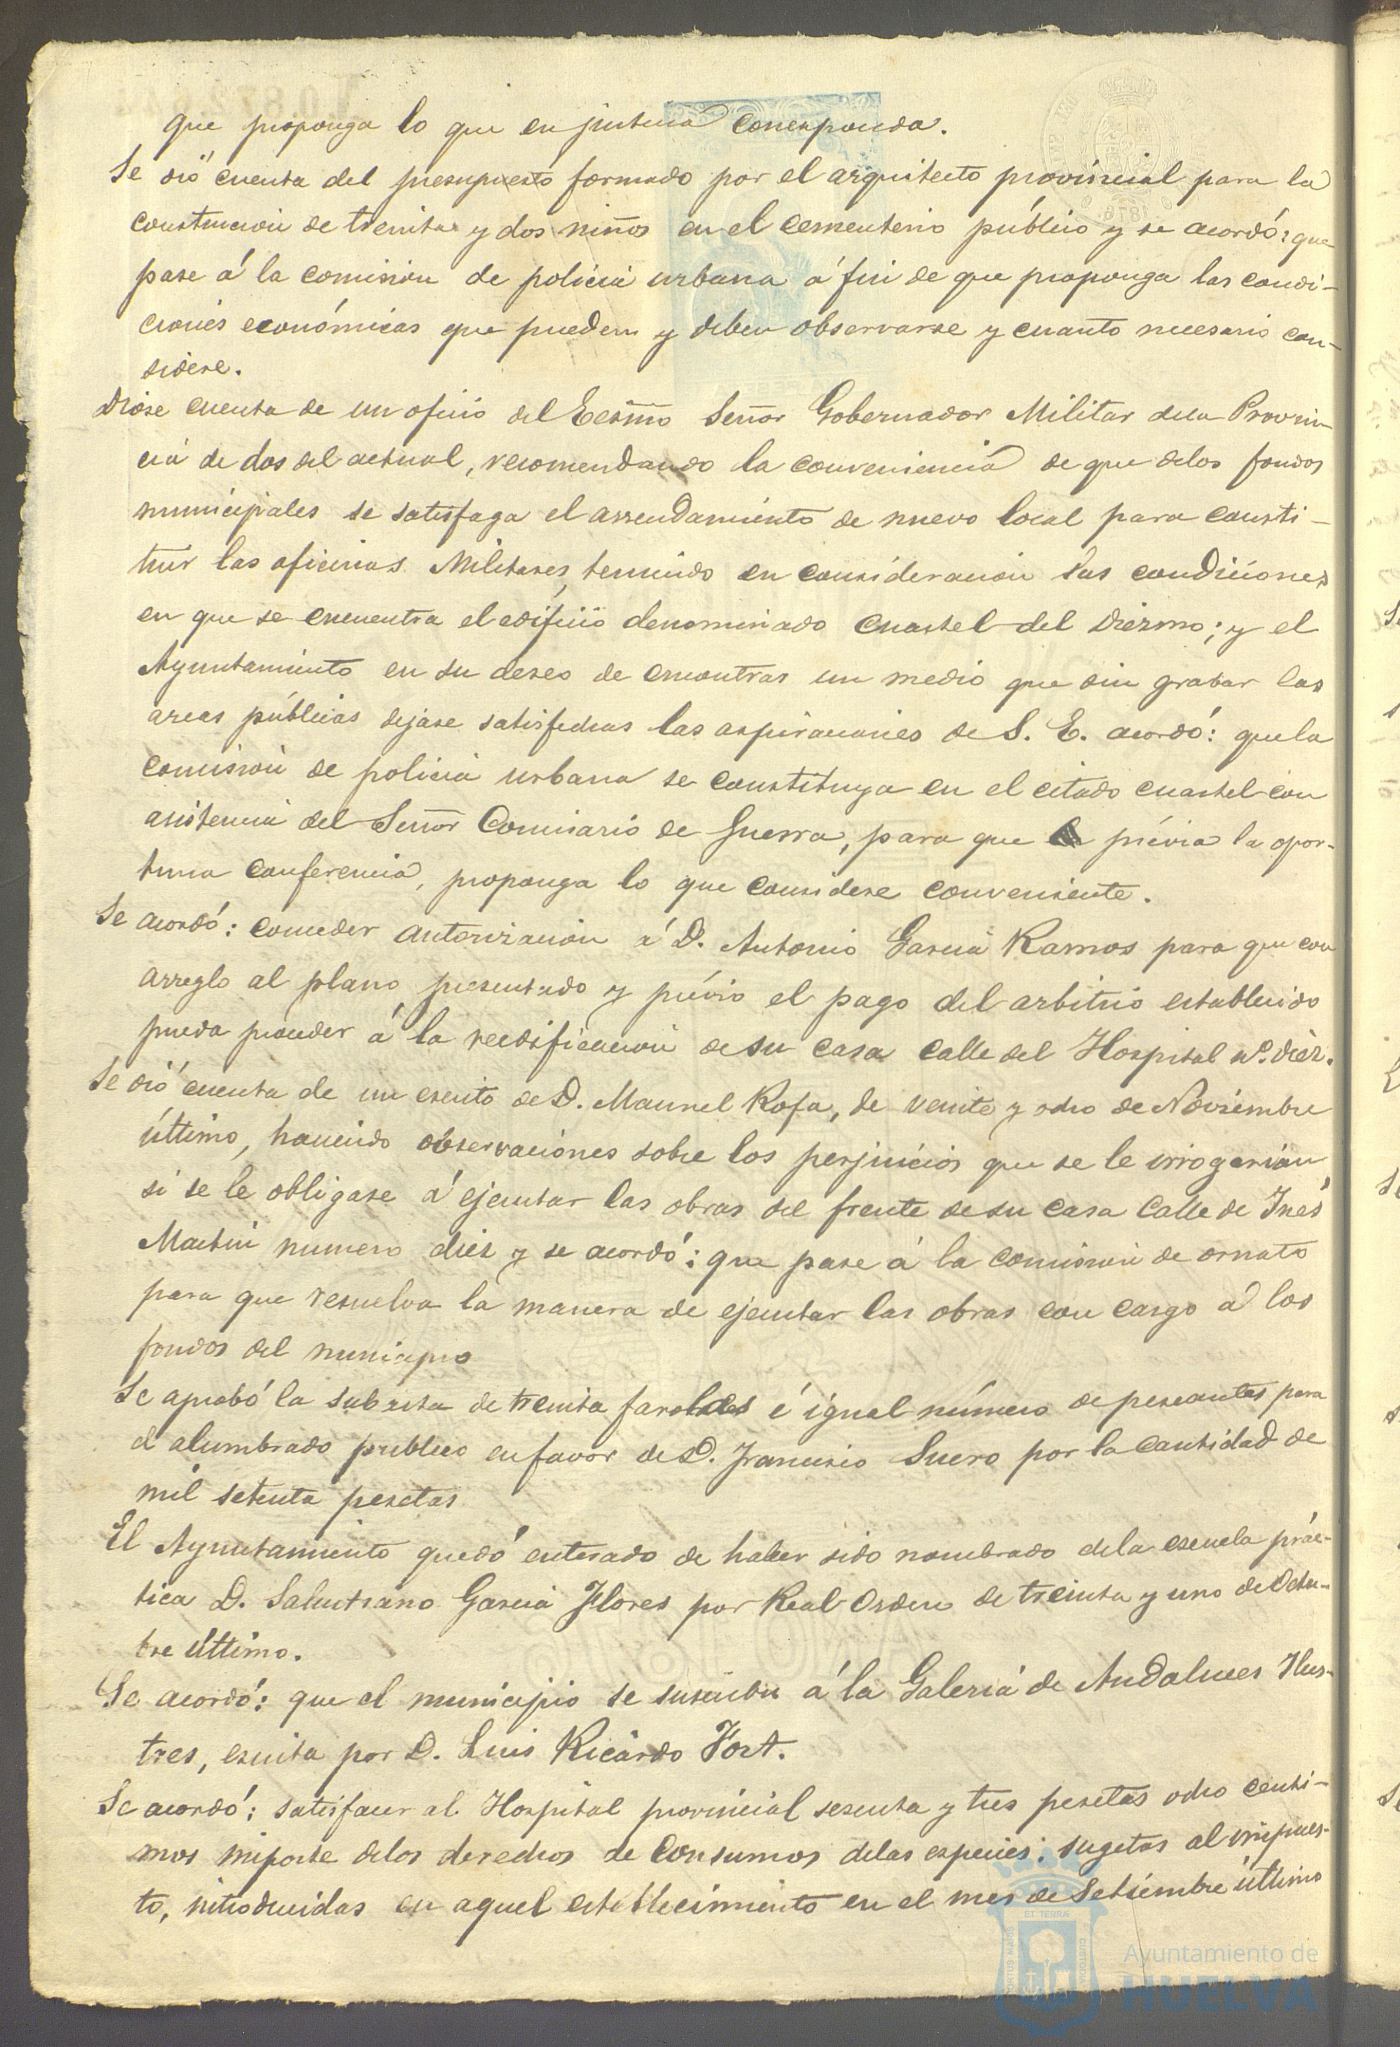 que proponga lo que en justicia corresponda.
Se dió cuenta del presupuesto formado por el arquitecto provincial para la
construcion de treinta y dos niños en el cementerio público y se acordó: que
pase á la comision de policia urbana á fin de que proponga las condi-
ciones económicas que pueden y deben observarse y cuanto necesario con-
sidere.
Dióse cuenta de un oficio del Ecsmo Señor Gobernador Militar dela Provin-
cia de dos del actual, recomendando la conveniencia de que delos fondos
municipales se satisfaga el arrendamiento de nuevo local para consti-
tuir las oficinas Militares, teniendo en consideracion las condiciones
en que se encuentra el edificio denominado cuartel del Diezmo; y el
Ayuntamiento en su deseo de encontrar un medio que sin grabar las
arcas públicas dejase satisfechas las aspiraciones de S. E. acordó: que la
comision de policia urbana se constituya en el citado cuartel con
asistencia del Señor Comisario de Guerra, para que prévia la opor-
tuna conferencia, proponga lo que considere conveniente.
Se acordó: conceder autorizacion á D. Antonio Garcia Ramos para que con
arreglo al plano presentado y prévio el pago del arbitrio establecido
pueda proceder á la reedificacion de su casa calle del Hospital nº. diez.
Se dió cuenta de un escrito de D. Manuel Rofa, de veinte y ocho de Noviembre
último, haciendo observaciones sobre los perjuicios que se le irrogarian
si se le obligase á ejecutar las obras del frente de su casa calle de Inés
Martin numero diez y se acordó: que pase á la comision de ornato
para que resuelva la manera de ejecutar las obras con cargo á los
fondos del municipio
Se aprobó la subasta de treinta faroles é igual número de pescantes para
el alumbrado publico en favor de D. Francisco Suero por la cantidad de
mil setenta pesetas
El Ayuntamiento quedó enterado de haber sido nombrado dela escuela prác-
tica D. Salustiano Garcia Flores por Real Orden de treinta y uno de Octu-
bre último.
Se acordó: que el municipio se suscriba á la Galeria de Andaluces Ilus-
tres, escrita por D. Luis Ricardo Fort.
Se acordó: satisfacer al Hospital provincial sesenta y tres pesetas ocho centi-
mos importe delos derechos de consumos delas especies sugetas al impues-
to, introducidas en aquel establecimiento en el mes de Setiembre último
Ayuntamiento de
HUELVA